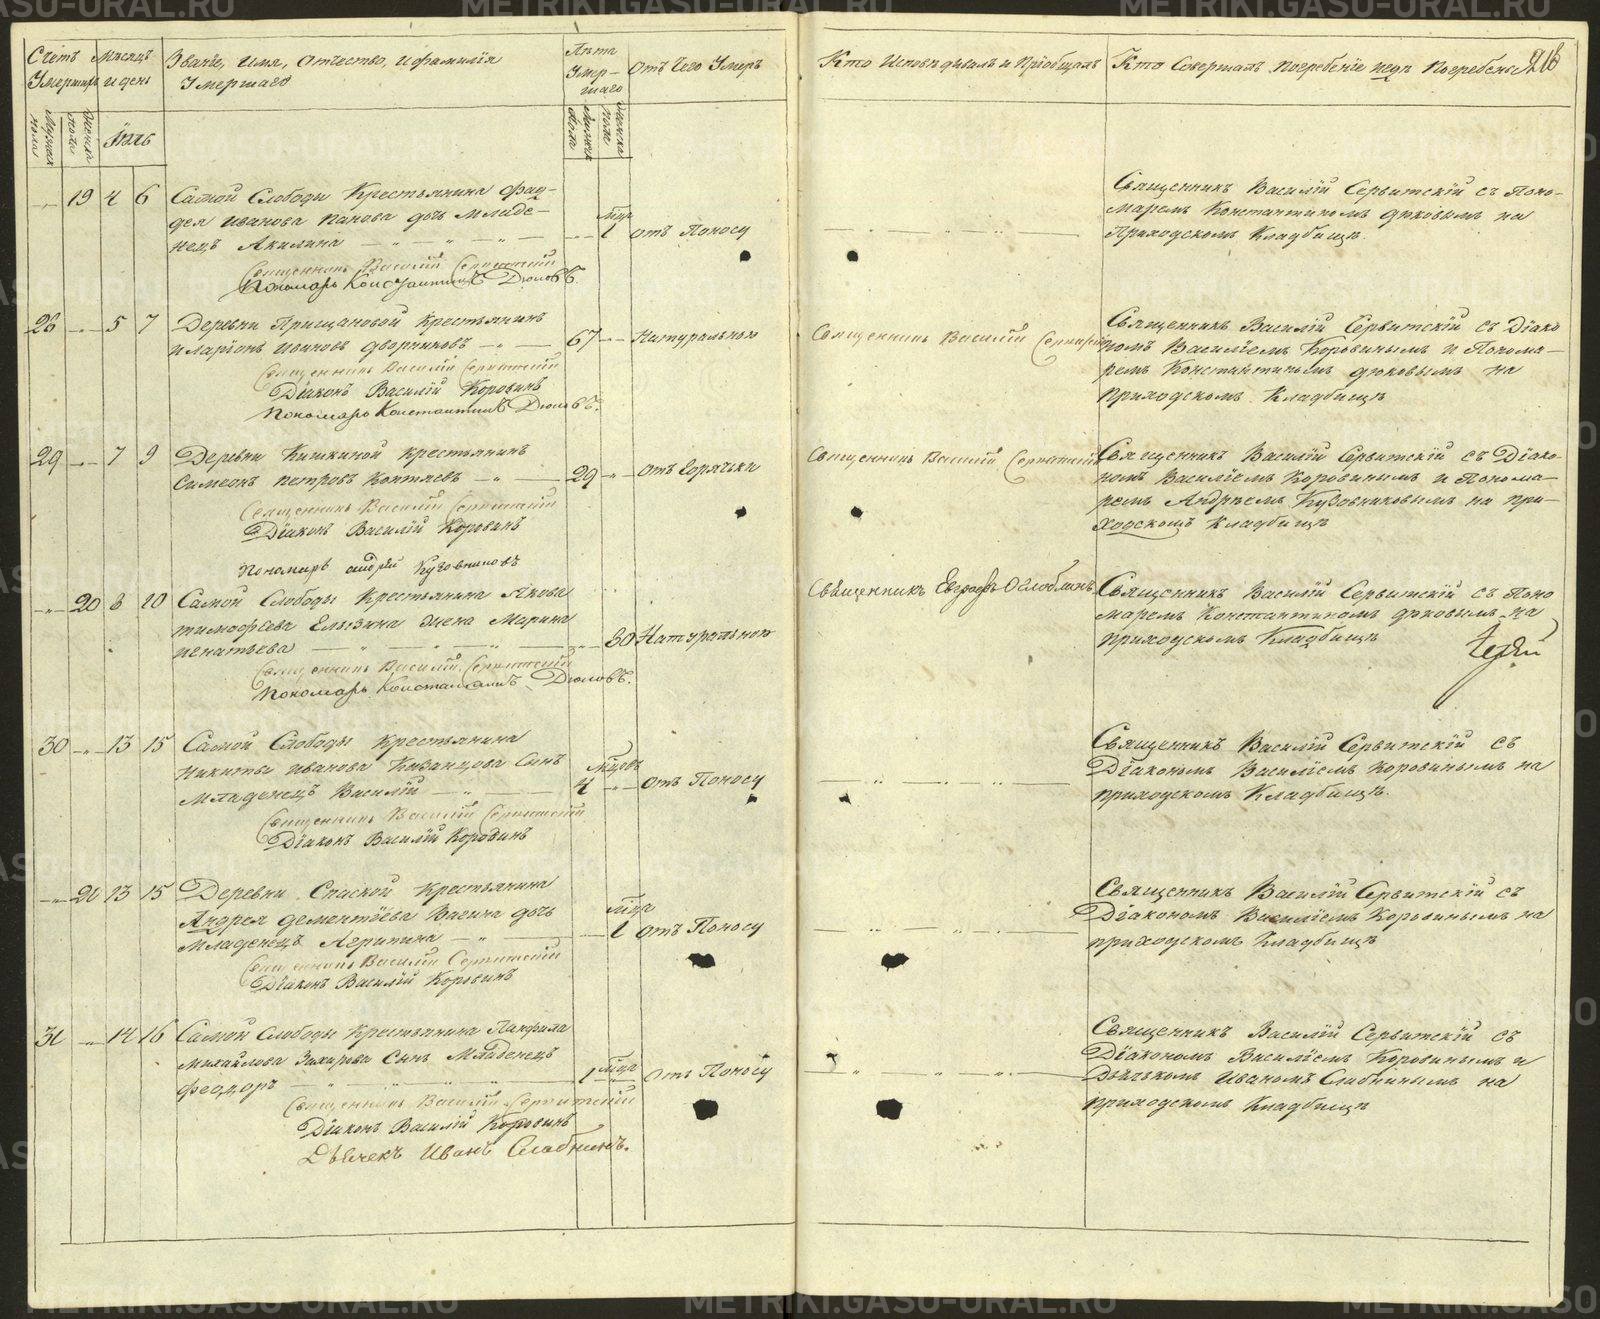 Счетъ Умершихъ
Мѣсяцъ и день
Званіе, Имя, Отчество, и фамилія
Умершаго
Лѣта
Умер-
шаго
Отъ Чего Умеръ
Кто Исповѣдывалъ и Пріобщалъ
Кто Совершалъ Погребеніе и гдѣ Погребены
216
Мужеска пола
Женска пола
Іюль
Мужеска пола
Женска пола
19 4 6 Самой Слободы Крестьянина Фад-
дея Иванова Панова дочь Младе-
нецъ Акилина 1 отъ Поносу
Священникъ Василій Сервитскій
Пономарь Константинъ Дюковъ.
Священникъ Василій Сервитскій съ Поно-
маремъ Константиномъ Дюковымъ на
Приходскомъ Кладбищѣ.
28 5 7 Деревни Прищановой Крестьянинъ
Иларіонъ Ивановъ Дворниковъ 67 Натурально
Священникъ Василій Сервитскій
Діаконъ Василій Коровинъ
Пономарь Константинъ Дюковъ.
Священникъ Василій Сервитскій
Священникъ Василій Сервитскій съ Діако
номъ Василіемъ Коровинымъ и Понома-
ремъ Константиномъ Дюковымъ на
Приходскомъ Кладбищѣ
29 7 9 Деревни Кишкиной крестьянинъ
Симеонъ Петровъ Контяевъ 29 отъ Горячьки
Священникъ Василій Сервитскій
Діаконъ Василій Коровинъ
Пономарь Андрей Кузовниковъ
Священникъ Василій Сервитскій
Священникъ Василій Сервитскій съ Діако-
номъ Василіемъ Коровинымъ и Понома-
ремъ Андреемъ Кузовниковымъ на при-
ходскомъ Кладбищѣ
20 8 10 Самой Слободы Крестьянина Якова
Тимофеева Елызина Жена Марина
Игнатьева 80 Натурально
Священникъ Василій Сервитскій
Пономарь Константинъ Дюковъ.
Священникъ Евграфъ Оглоблинъ
Священникъ Василій Сервитскій съ Поно
маремъ Константиномъ Дюковымъ на
приходскомъ Кладбищѣ
30 13 15 Самой Слободы Крестьянина
Никиты Иванова Казанцова Сынъ
Младенецъ Василій 4 отъ Поносу
Священникъ Василій Сервитскій
Діаконъ Василій Коровинъ
Священникъ Василій Сервитскій съ
Діакономъ Василіемъ Коровинымъ на
приходскомъ Кладбищѣ.
20 13 15 Деревни Спаской Крестьянина
Андрея Дементіева Васина дочь
Младенецъ Агрипина 1 отъ Поносу
Священникъ Василій Сервитскій
Діаконъ Василій Коровинъ
Священникъ Василій Сервитскій съ
Діакономъ Василіемъ Коровинымъ на
приходскомъ Кладбищѣ
31 14 16 Самой Слободы Крестьянина Панфила
Михайлова Захарова Сынъ Младенецъ
Феодоръ 1 отъ Поносу
Священникъ Василій Сервитскій
Діаконъ Василій Коровинъ
Дьячекъ Иванъ Слабнинъ.
Священникъ Василій Сервитскій съ
Діакономъ Василіемъ Коровинымъ и
Дьячькомъ Иваномъ Слабнинымъ на
приходскомъ Кладбищѣ
METRIKI.GASU-URAL.RU